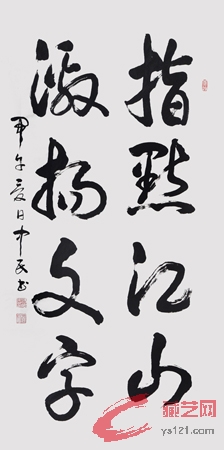 指點江山
激揚文字
甲午夏日中民書
藏艺网
ys121.com